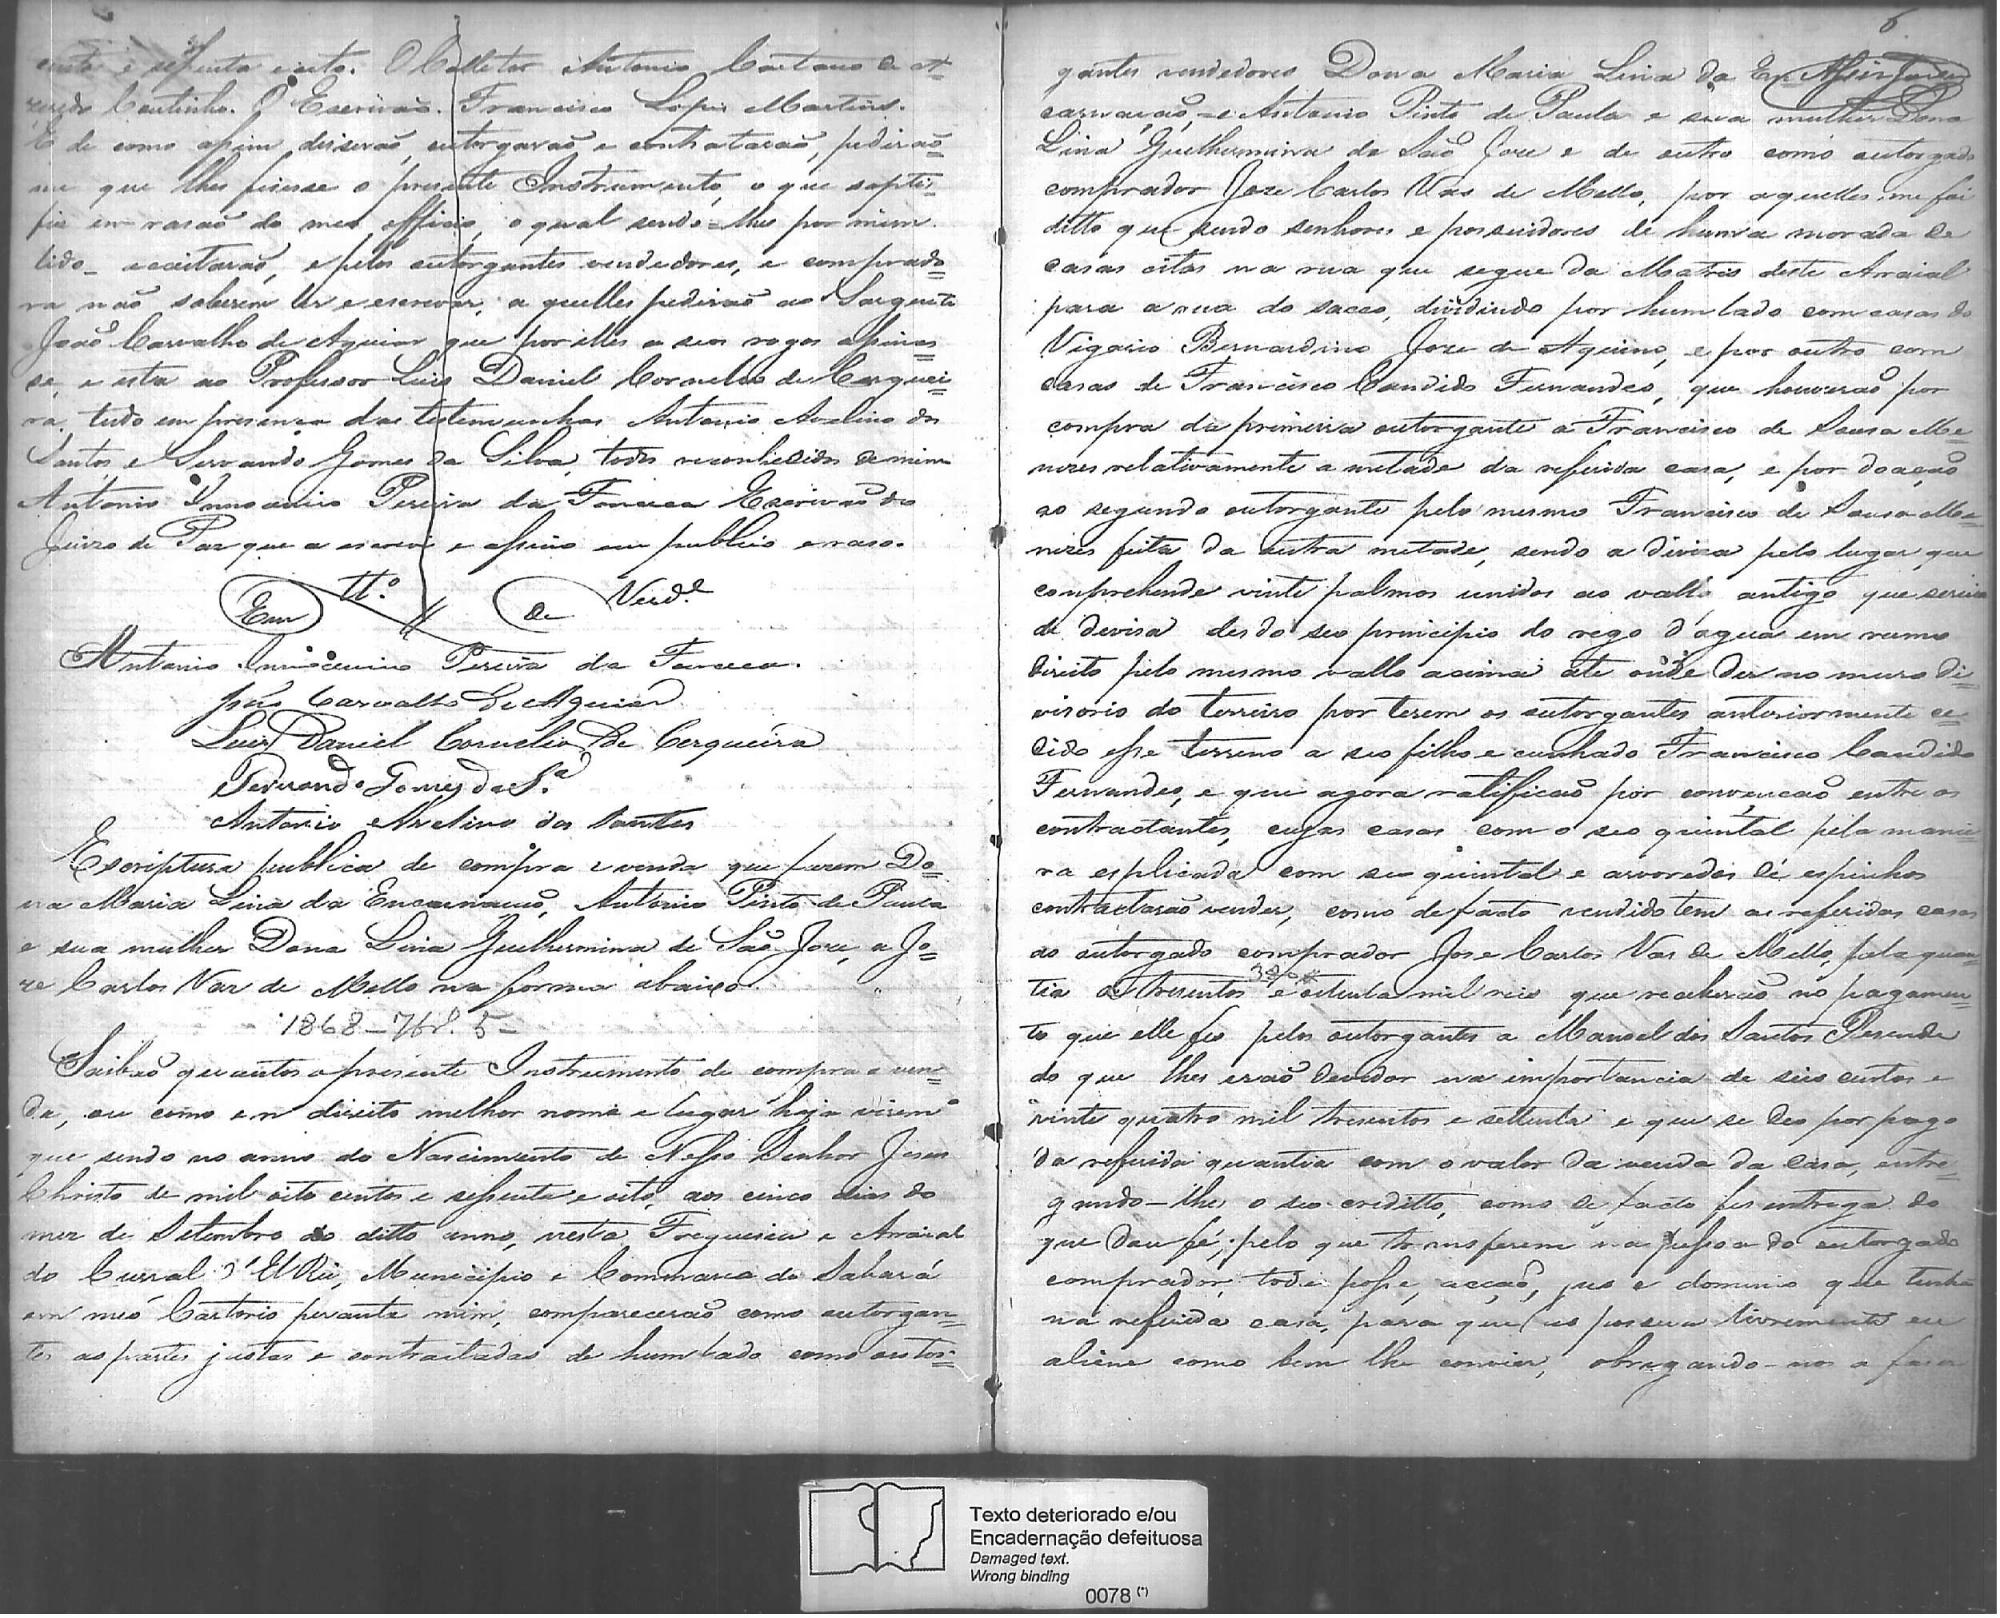 cento e sessenta e oito. O Colletor Antonio Caetano de A-
zeredo Coutinho. O Escrivaõ. Francisco Lopes Martins.
E de como assim disseraõ, outorgaraõ e contrataraõ, pediraõ=
me que lhes fisesse o presente Instrumento, o que sastis=
fis em rasaõ do meu officio, o qual sendo=lhes por mim
lido_ aceitaraõ, e pelos outorgantes vendedores, e comprado=
ra naõ saberem ler e escrever, a quelles pediraõ ao Sargento
Joaõ Carvalho de Aguiar que por elles a seos rogos assinas=
se, e esta ao Professor Luis Daniel Cornelio de Cerquei=
ra, tudo em presença das testemunhas Antonio Avelino dos
Santos e Servando Gomes da Silva, todos reconhecidos de mim
Antonio Innocencio Pereira da Fonseca Escrivaõ do
Juizo de Paz que a escrevi e assino em publico e raso.
Em Tt.º de Verd.e
Antonio Innocencio Pereira da Fonseca.
Joaõ Carvalho de Aguiar
Luis Daniel Cornelio de Cerqueira
Servando Gomes da S.ª
Antonio Avelino dos Santos
Escriptura publica de compra e venda que fasem Do=
na Maria Lina da Encarnaçaõ, Antonio Pinto de Paula
e sua mulher Dona Lina Guilhermina de Saõ Jose, a Jo=
ze Carlos Vaz de Mello na forma abaixo.
1868_7br.º 5_
Saibaõ quantos o presente Instrumento de compra e ven=
da, ou como em direito melhor nome e lugar haja virem
que sendo no anno do Nascimento de Nosso Senhor Jesus
Christo de mil oito centos e sessenta e oito, aos cinco dias do
mez de Setembro do ditto anno, nesta Freguesia e Arraial
do Curral d'El Rei, Municipio e Commarca do Sabará
em meo Cartorio perante mim, compareceraõ como outorgan=
tes as partes justas e contractadas de hum lado como outor=
6
gantes vendedores Dona Maria Lina da En
carnaçaõ,=e Antonio Pinto de Paula e sua mulher Dona
Lina Guilhermina de Saõ Jose e de outro como outorgado
comprador Joze Carlos Vas de Mello, por aquelles me foi
ditto que sendo senhores e possuidores de huma morada de
casas citas na rua que segue da Matris deste Arraial
para a rua do sacco, dividindo por hum lado com casas do
Vigario Bernardino Joze de Aquino, e por outro com
casas de Francisco Candido Fernandes, que houveraõ por
compra da primeira outorgante a Francisco de Sousa Me=
nezes relativamente a metade da referida casa, e por doaçaõ
ao segundo outorgante pelo mesmo Francisco de Sousa Me=
nezes feita da outra metade, sendo a divisa pelo lugar que
comprehende vinte palmos unidos ao vallo antigo que servia
de devisa desdo seo principio do rego d'agua em rumo
direito pelo mesmo vallo acima ate onde der no muro di=
visorio do terreiro por terem os outorgantes anteriormente ce=
dido esse terreno a seo filho e cunhado Francisco Candido
Fernandes, e que agora ratificaõ por convençaõ entre os
contractantes, cujas casas com o seo quintal pela manei
ra esplicada com seo quintal e arvoredos de espinhos
contractaraõ vender, como de facto vendido tem as referidas casas
ao outorgado comprador Jose Carlos Vas de Mello, pela quan
380$
tia de tresentos e oitenta mil reis que receberaõ no pagamen=
to que elle fes pelos outorgantes a Manoel dos Santos Resende
do que lhes eraõ devedor na importancia de seis centos e
vinte quatro mil tresentos e settenta e que se deo por pago
da referida quantia com o valor da venda da casa, entre=
gando-lhes o seo creditto, como de facto fes entrega do
que dou fé; pelo que transferem na pessoa do outorgado
comprador, toda posse, acçaõ, jus e dominio que tinhaõ
na referida casa, para que as possua livremente ou
aliene como bem lhe convier, obrigando-nos a faser
Texto deteriorado e/ou
Encadernação defeituosa
Damaged text.
Wrong binding
0078 (*)